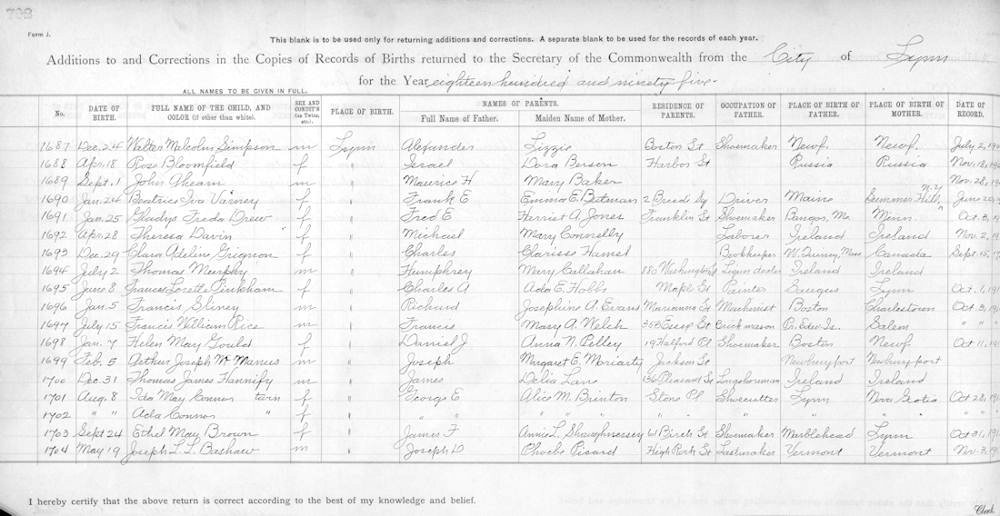 Form J.
This blank is to be used only for returning additions and corrections. A separate blank to be used for the records of each year.
Additions to and Corrections in the Copies of Records of Births returned to the Secretary of the Commonwealth from the City of Lynn
for the Year eighteen hundred and ninety five.
ALL NAMES TO BE GIVEN IN FULL.
No. DATE OF BIRTH. FULL NAME OF THE CHILD, AND COLOR (if other than white). SEX AND CONDIT'N (as Twins, etc.). PLACE OF BIRTH. NAMES OF PARENTS. Full Name of Father. Maiden Name of Mother. RESIDENCE OF PARENTS. OCCUPATION OF FATHER. PLACE OF BIRTH OF FATHER. PLACE OF BIRTH OF MOTHER. DATE OF RECORD.
1687 Dec. 24 Walter Malcolm Simpson m Lynn Alexander Lizzie Boston St Shoemaker Newf. Newf. July 2
1688 Apr. 18 Rose Bloomfield f " Israel Dora Berson Harbor St Russia Russia Nov. 18
1689 Sept. 1 John Ahearn m " Maurice H Mary Baker Nov. 28
1690 Jan. 24 Beatrice Iva Varney f " Frank E Emma E. Bateman 2 Breed Driver Maine Summer Hill, N.Y June
1691 Jan. 25 Gladys Freda Drew f " Fred E Harriet A. Jones Franklin St Shoemaker Bangor, Me Minn. Oct. 3
1692 Apr. 28 Theresa Davin f " Michael Mary Connelly Laborer Ireland Ireland Nov. 2
1693 Dec. 29 Clara Adeline Grignon f " Charles Clarisse Hamel Bookkeeper W. Quincy, Mass Canada Sept. 15
1694 July 2 Thomas Murphy m " Humphrey Mary Callahan 880 Washington St Liquor dealer Ireland Ireland
1695 June 8 Frances Lorette Pinkham f " Charles A Ada E. Hobbs Maple St Painter Saugus Lynn Oct. 1
1696 Jan. 5 Francis Sliney m " Richard Josephine A. Evans Marianna St Machinist Boston Charlestown Oct. 3
1697 July 15 Francis William Rice m " Francis Mary A. Welch 368 Essex St Brick mason P. Edw. Is. Salem " "
1698 Jan. 7 Helen May Gould f " Daniel J Anna N. Pelley 19 Halford Pl Shoemaker Boston Newf. Oct. 11
1699 Feb. 5 Arthur Joseph McManus m " Joseph Margaret E. Moriarty Jackson St Newburyport Newburyport
1700 Dec. 31 Thomas James Hannify m " James Delia Lane 136 Pleasant St Longshoreman Ireland Ireland
1701 Aug. 8 Ida May Connor twin f " George E Alice M. Brinton Stone Pl Shoecutter Lynn Nova Scotia Oct. 28
1702 " " Ada Connor " f " " " " " " " " "
1703 Sept 24 Ethel May Brown f " James F Annie L. Shaughnessey 61 Birch St Shoemaker Marblehead Lynn Oct 31
1704 May 19 Joseph L. L. Bashaw m " Joseph D Phoebe Pisard High Rock St Lastmaker Vermont Vermont Nov. 3
I hereby certify that the above return is correct according to the best of my knowledge and belief.
Clerk.